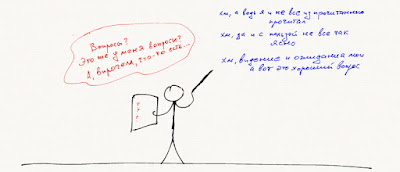 Вопросы?
Это же у меня вопросы?
А, впрочем, что-то есть...
хм, а ведь я и не все из прочитанного
прочитал
хм, да и с пользой не все так
ясно
хм, видение и ожидания мои
а вот это хороший вопрос